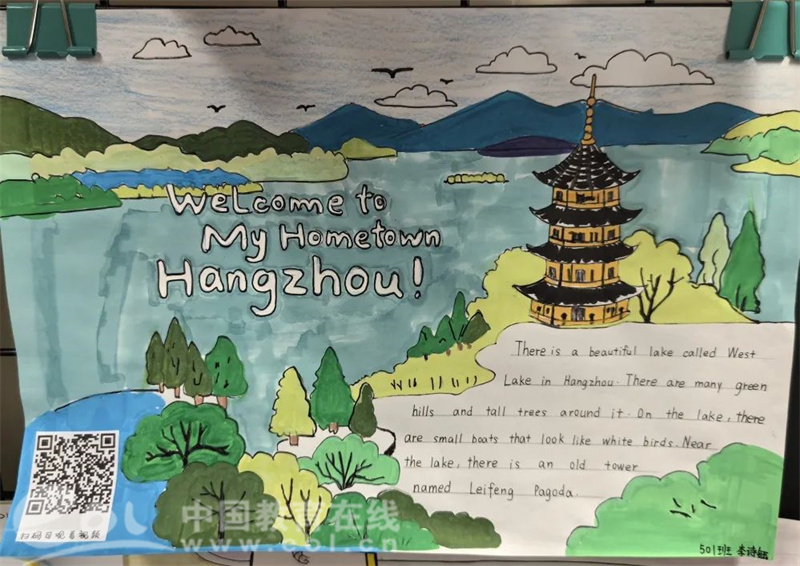 Welcome to
My Hometown
Hangzhou!
There is a beautiful lake called West
Lake in Hangzhou. There are many green
hills and tall trees around it. On the lake, there
are small boats that look like white birds. Near
the lake, there is an old tower
named Leifeng Pagoda.
扫码可观看视频
中国教育在线
eol.cn
501班 李诗钰